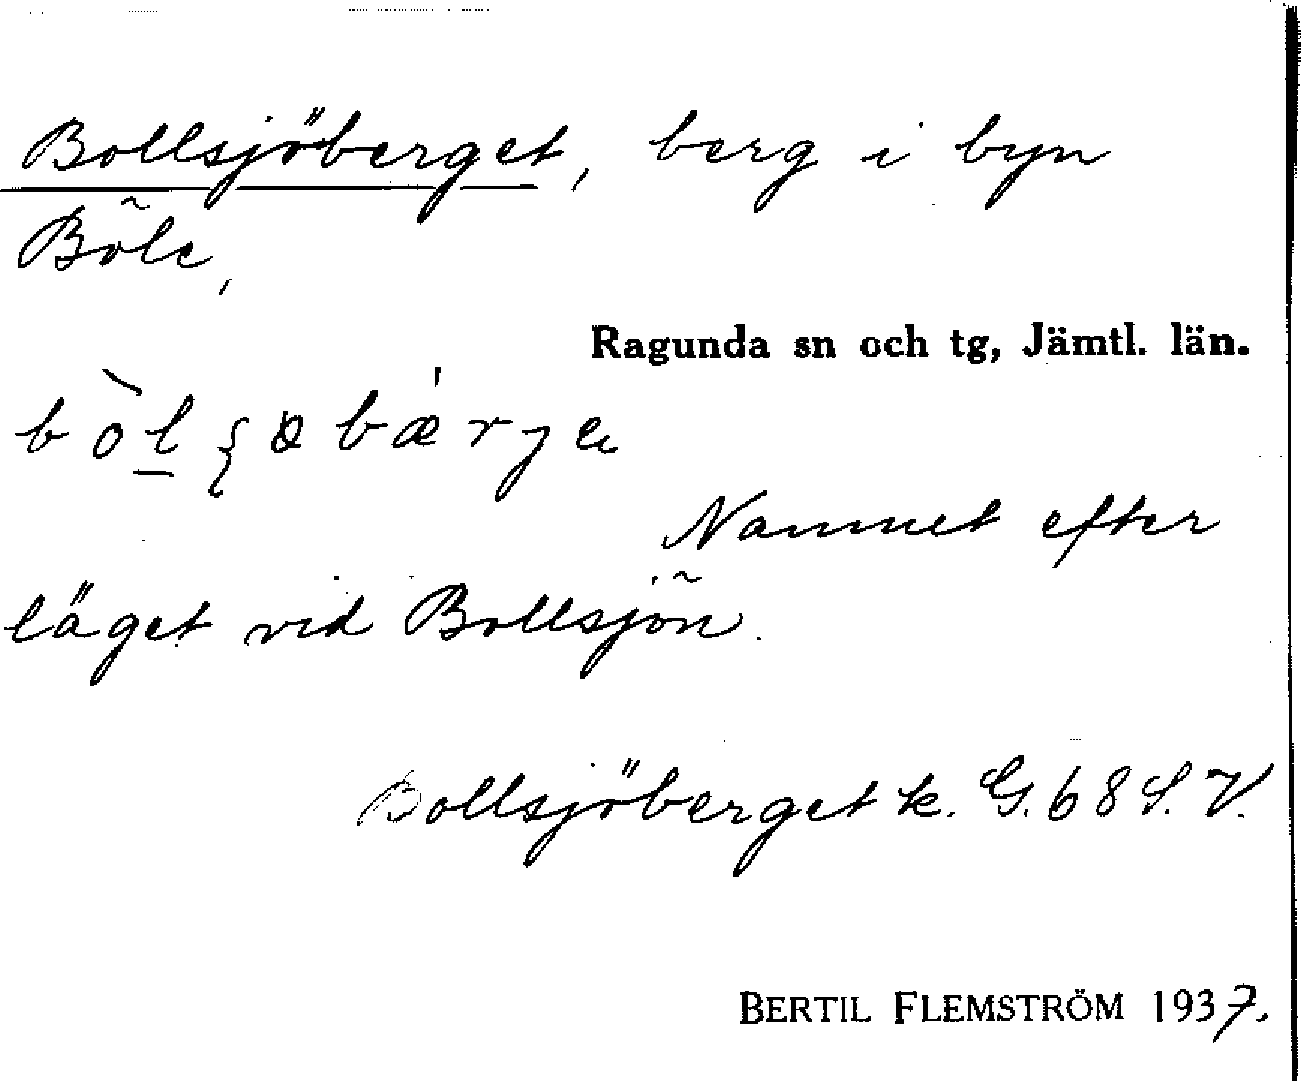 Bollsjöberget, berg i byn
Böle,
Ragunda sn och tg, Jämtl. län.
Namnet efter
läget vid Bollsjön.
Bollsjöberget k. G. 68 S. V.
BERTIL FLEMSTRÖM 1937.